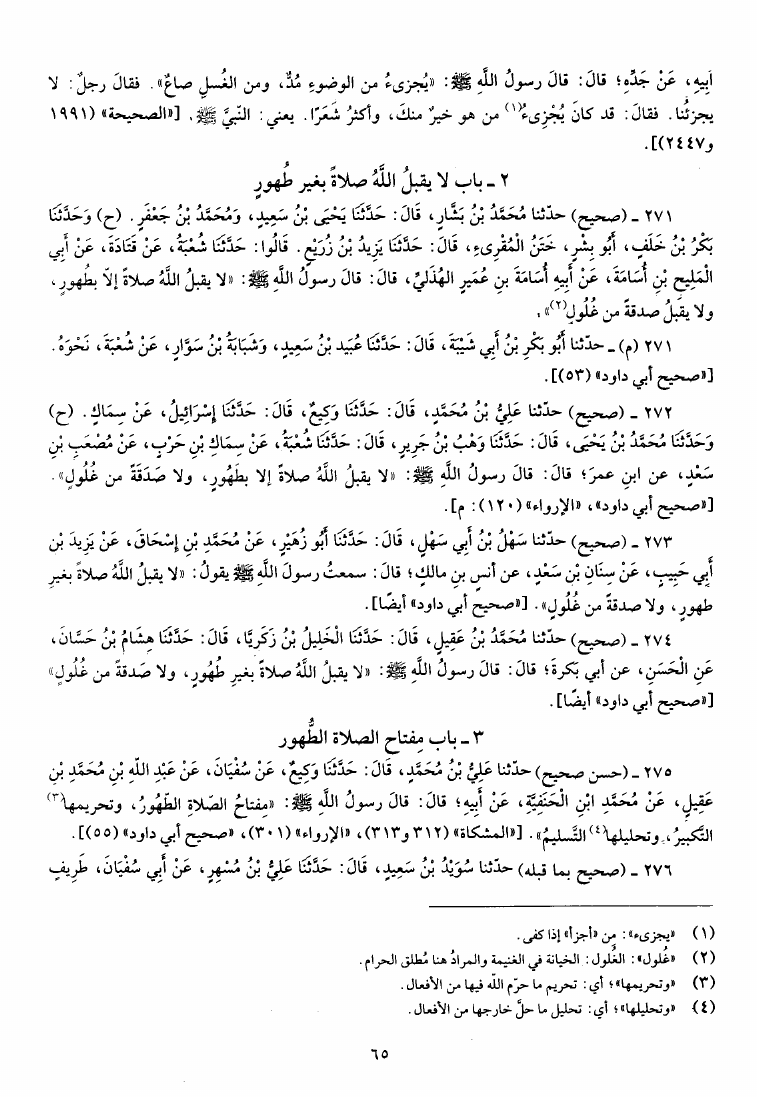 أَبِيهِ، عَنْ جَدِّهِ؛ قالَ: قالَ رسولُ اللَّهِ ﷺ: «يُجزىءُ من الوضوءِ مُدٌّ، ومن الغُسلِ صاعٌ». فقالَ رجلٌ: لا
يجزئُنا. فقالَ: قد كانَ يُجْزِىءُ(١) من هو خيرٌ منكَ، وأكثرُ شَعَرًا. يعني: النّبيَّ ﷺ. [«الصحيحة» (١٩٩١
و٢٤٤٧)].
٢ ـ باب لا يقبلُ اللَّهُ صلاةً بغير طُهورٍ
٢٧١ ـ (صحيح) حدّثنا مُحَمَّدُ بْنُ بَشَّارٍ، قَالَ: حَدَّثَنَا يَحْيَى بْنُ سَعِيدٍ، وَمُحَمَّدُ بْنُ جَعْفَرٍ. (ح) وَحَدَّثَنَا
بَكْرُ بْنُ خَلَفٍ، أَبُو بِشْرٍ، خَتَنُ الْمُقْرِىءِ، قَالَ: حَدَّثَنَا يَزِيدُ بْنُ زُرَيْعٍ. قَالُوا: حَدَّثَنَا شُعْبَةُ، عَنْ قَتَادَةَ، عَنْ أَبِي
الْمَلِيحِ بْنِ أُسَامَةَ، عَنْ أَبِيهِ أُسَامَةَ بنِ عُمَيرٍ الهُذَليِّ، قالَ: قالَ رسولُ اللَّهِ ﷺ: «لا يقبلُ اللَّهُ صلاةً إلاّ بطُهورٍ،
ولا يقبلُ صدقةً من غُلُولٍ(٢)».
٢٧١ (م) ـ حدّثنا أَبُو بَكْرِ بْنُ أَبِي شَيْبَةَ، قَالَ: حَدَّثَنَا عُبَيد بْنُ سَعِيدٍ، وَشَبَابَةُ بْنُ سَوَّارٍ، عَنْ شُعْبَةَ، نَحْوَهُ.
[«صحيح أبي داود» (٥٣)].
٢٧٢ ـ (صحيح) حدّثنا عَلِيُّ بْنُ مُحَمَّدٍ، قَالَ: حَدَّثَنَا وَكِيعٌ، قَالَ: حَدَّثَنَا إِسْرَائِيلُ، عَنْ سِمَاكٍ. (ح)
وَحَدَّثَنَا مُحَمَّدُ بْنُ يَحْيَى، قَالَ: حَدَّثَنَا وَهْبُ بْنُ جَرِيرٍ، قَالَ: حَدَّثَنَا شُعْبَةُ، عَنْ سِمَاكِ بْنِ حَرْبٍ، عَنْ مُصْعَبِ بْنِ
سَعْدٍ، عن ابنِ عمرَ؛ قالَ: قالَ رسولُ اللَّهِ ﷺ: «لا يقبلُ اللَّهُ صلاةً إلا بطَهُورٍ، ولا صَدَقَةً من غُلُولٍ».
[«صحيح أبي داود»، «الإرواء» (١٢٠): م].
٢٧٣ ـ (صحيح) حدّثنا سَهْلُ بْنُ أَبِي سَهْلٍ، قَالَ: حَدَّثَنَا أَبُو زُهَيْرٍ، عَنْ مُحَمَّدِ بْنِ إِسْحَاقَ، عَنْ يَزِيدَ بْنِ
أَبِي حَبِيبٍ، عَنْ سِنَانِ بْنِ سَعْدٍ، عن أنسِ بنِ مالكٍ؛ قالَ: سمعتُ رسولَ اللَّهِ ﷺ يقولُ: «لا يقبلُ اللَّهُ صلاةً بغيرِ
طهورٍ، ولا صدقةً من غُلُولٍ». [«صحيح أبي داود» أيضًا].
٢٧٤ ـ (صحيح) حدّثنا مُحَمَّدُ بْنُ عَقِيلٍ، قَالَ: حَدَّثَنَا الْخَلِيلُ بْنُ زَكَرِيَّا، قَالَ: حَدَّثَنَا هِشَامُ بْنُ حَسَّانَ،
عَنِ الْحَسَنِ، عن أبي بَكرةَ؛ قالَ: قالَ رسولُ اللَّهِ ﷺ: «لا يقبلُ اللَّهُ صلاةً بغيرِ طُهُورٍ، ولا صَدقةً من غُلُولٍ»
[«صحيح أبي داود» أيضًا].
٣ ـ باب مِفتاح الصلاة الطُّهور
٢٧٥ ـ (حسن صحيح) حدّثنا عَلِيُّ بْنُ مُحَمَّدٍ، قَالَ: حَدَّثَنَا وَكِيعٌ، عَنْ سُفْيَانَ، عَنْ عَبْدِ اللّهِ بْنِ مُحَمَّدِ بْنِ
عَقِيلٍ، عَنْ مُحَمَّدِ ابْنِ الْحَنَفِيَّةِ، عَنْ أَبِيهِ؛ قالَ: قالَ رسولُ اللَّهِ ﷺ: «مِفتاحُ الصّلاةِ الطّهُورُ، وتحريمها(٣)
التَّكبيرُ، وتحليلها(٤) التَّسليمُ». [«المشكاة» (٣١٢ و٣١٣)، «الإرواء» (٣٠١)، «صحيح أبي داود» (٥٥)].
٢٧٦ ـ (صحيح بما قبله) حدّثنا سُوَيْدُ بْنُ سَعِيدٍ، قَالَ: حَدَّثَنَا عَلِيُّ بْنُ مُسْهِرٍ، عَنْ أَبِي سُفْيَانَ، طَرِيفٍ
(١) «يجزىء»: مِن «أجزأ» إذا كفى.
(٢) «غُلول»: الغُلول: الخيانة في الغنيمة والمرادُ هنا مُطلق الحرام.
(٣) «وتحريمها»؛ أي: تحريم ما حرّم اللّه فيها من الأفعال.
(٤) «وتحليلها»؛ أي: تحليل ما حلَّ خارجها من الأفعال.
٦٥